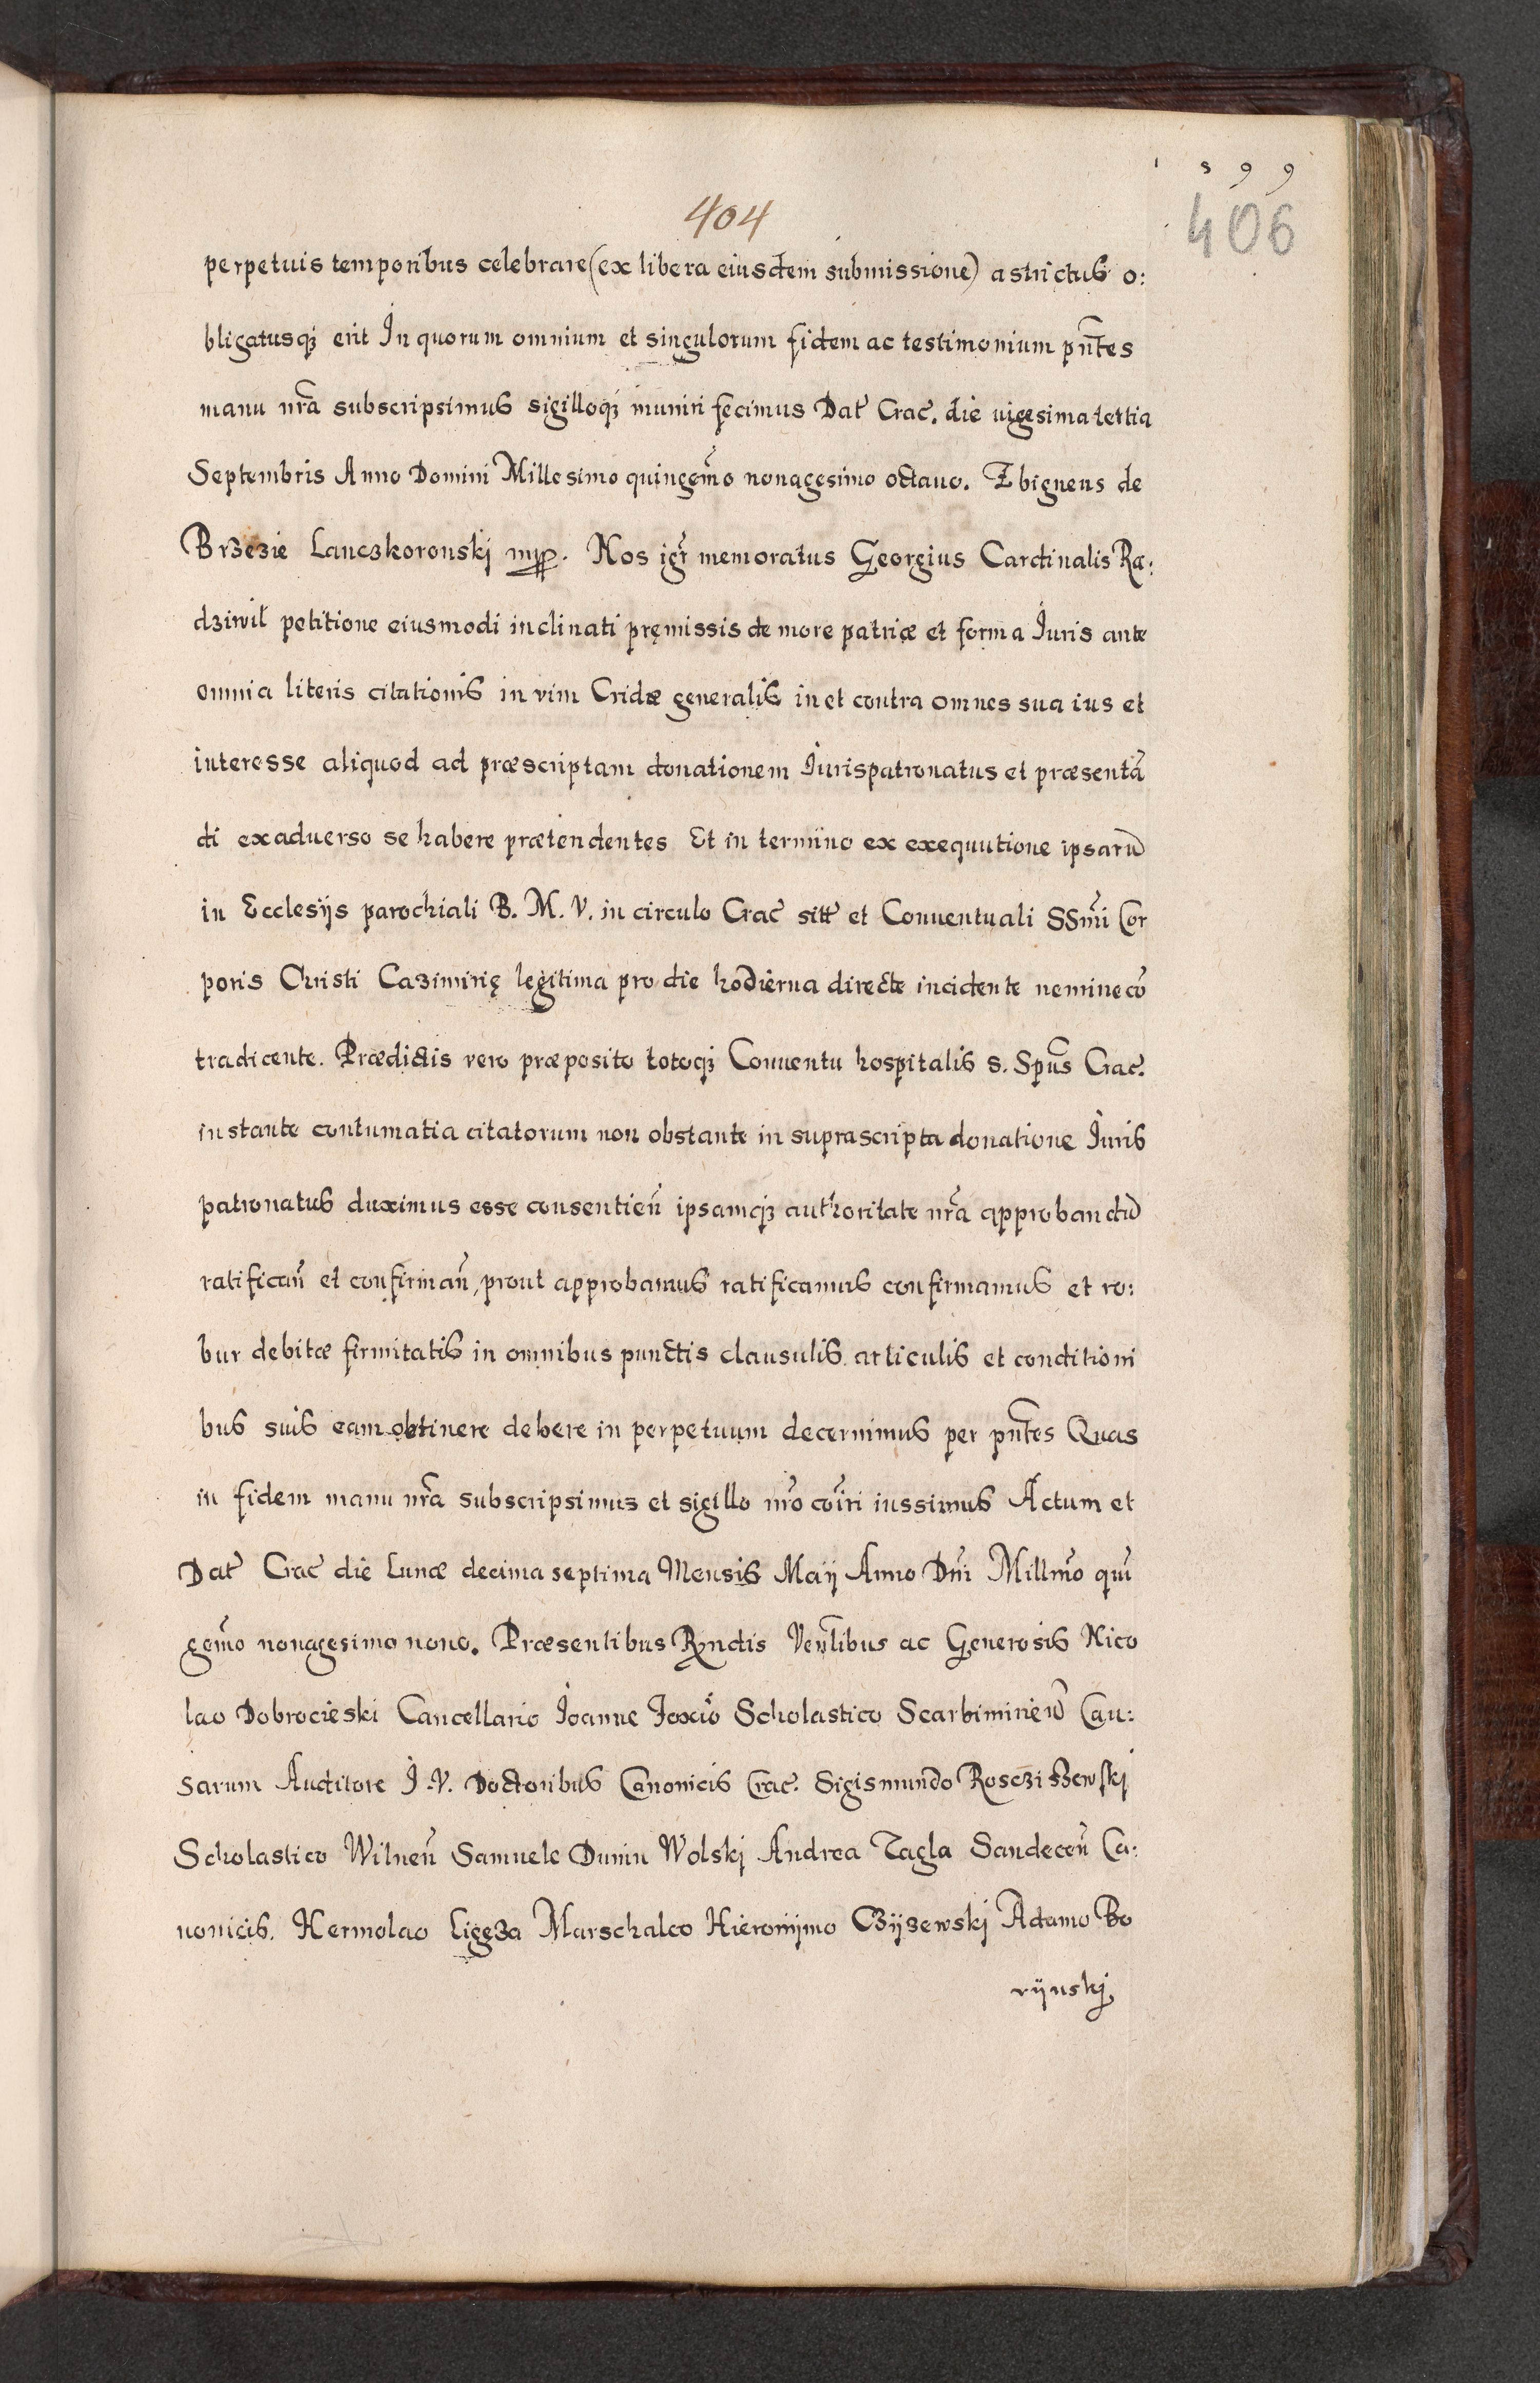 1 5 9 9
406
404
perpetuis temporibus celebrare (ex libera eiusdem submissione) astrictus o:
bligatusqꝫ erit In quorum omnium et singulorum fidem ac testimonium pñtes
manu nrã subscripsimus sigilloqꝫ muniri fecimus Dat̃ Crac̃. die uigesima tertia
Septembris Anno Domini Millesimo quingem̃o nonagesimo octauo. Zbigneus de
Brzezie Lanczkoronski mpp. Nos igr̃ memoratus Georgius Cardinalis Ra:
dziwił petitione eiusmodi inclinati pręmissis de more patriæ et forma Iuris ante
omnia literis citationis in vim Cridæ generalis in et contra omnes sua ius et
interesse aliquod ad præscriptam donationem Iurispatronatus et præsentã
di ex aduerso se habere prætendentes Et in termino ex exequutione ipsarũ
in Ecclesijs parochiali B. M. V. in circulo Crac̃ sitt̃ et Conuentuali SSm̃i Cor
poris Christi Cazimirię legitima pro die hodierna directe incidente nemine cõ
tradicente. Prædictis vero præposito totoqꝫ Conuentu hospitalis S. Spũs Crac̃.
instante contumatia citatorum non obstante in suprascripta donatione Iuris
patronatus duximus esse consentieñ ipsamqꝫ authoritate nrã approbandũ
ratificañ et confirmañ, prout approbamus ratificamus confirmamus et ro:
bur debitæ firmitatis in omnibus punctis clausulis articulis et conditioni
bus suis eam obtinere debere in perpetuum decernimus per pñtes Quas
in fidem manu nrã subscripsimus et sigillo nrõ cõiri iussimus Actum et
Dat̃ Crac̃ die Lunæ decima septima Mensis Maij Anno Dñi Millm̃o quĩ
gem̃o nonagesimo nono. Præsentibus Rñdis Veñlibus ac Generosis Nico
lao Dobrocieski Cancellario Ioanne Foxio Scholastico Scarbimirieñ Cau:
sarum Auditore I. V. Doctoribus Canonicis Crac̃. Sigismundo Roscziszewski
Scholastico Wilneñ Samuele Dunin Wolski Andrea Tagla Sandeceñ Ca:
nonicis. Hermolao Ligęza Marschalco Hieronijmo Czijzewski Adamo Bo
rijnski